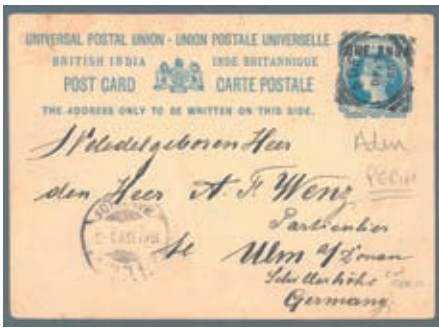 UNIVERSAL POSTAL UNION - UNION POSTALE UNIVERSELLE
BRITISH INDIA INDE BRITANNIQUE
POST CARD CARTE POSTALE
THE ADDRESS ONLY TO BE WRITTEN ON THIS SIDE.
ONE ANNA
Weledelgeboren Heer
Aden
den Heer A. F. Wenz
PERIM
Particulier
te Ulm a/Donau
Schillerhöhe
Germany